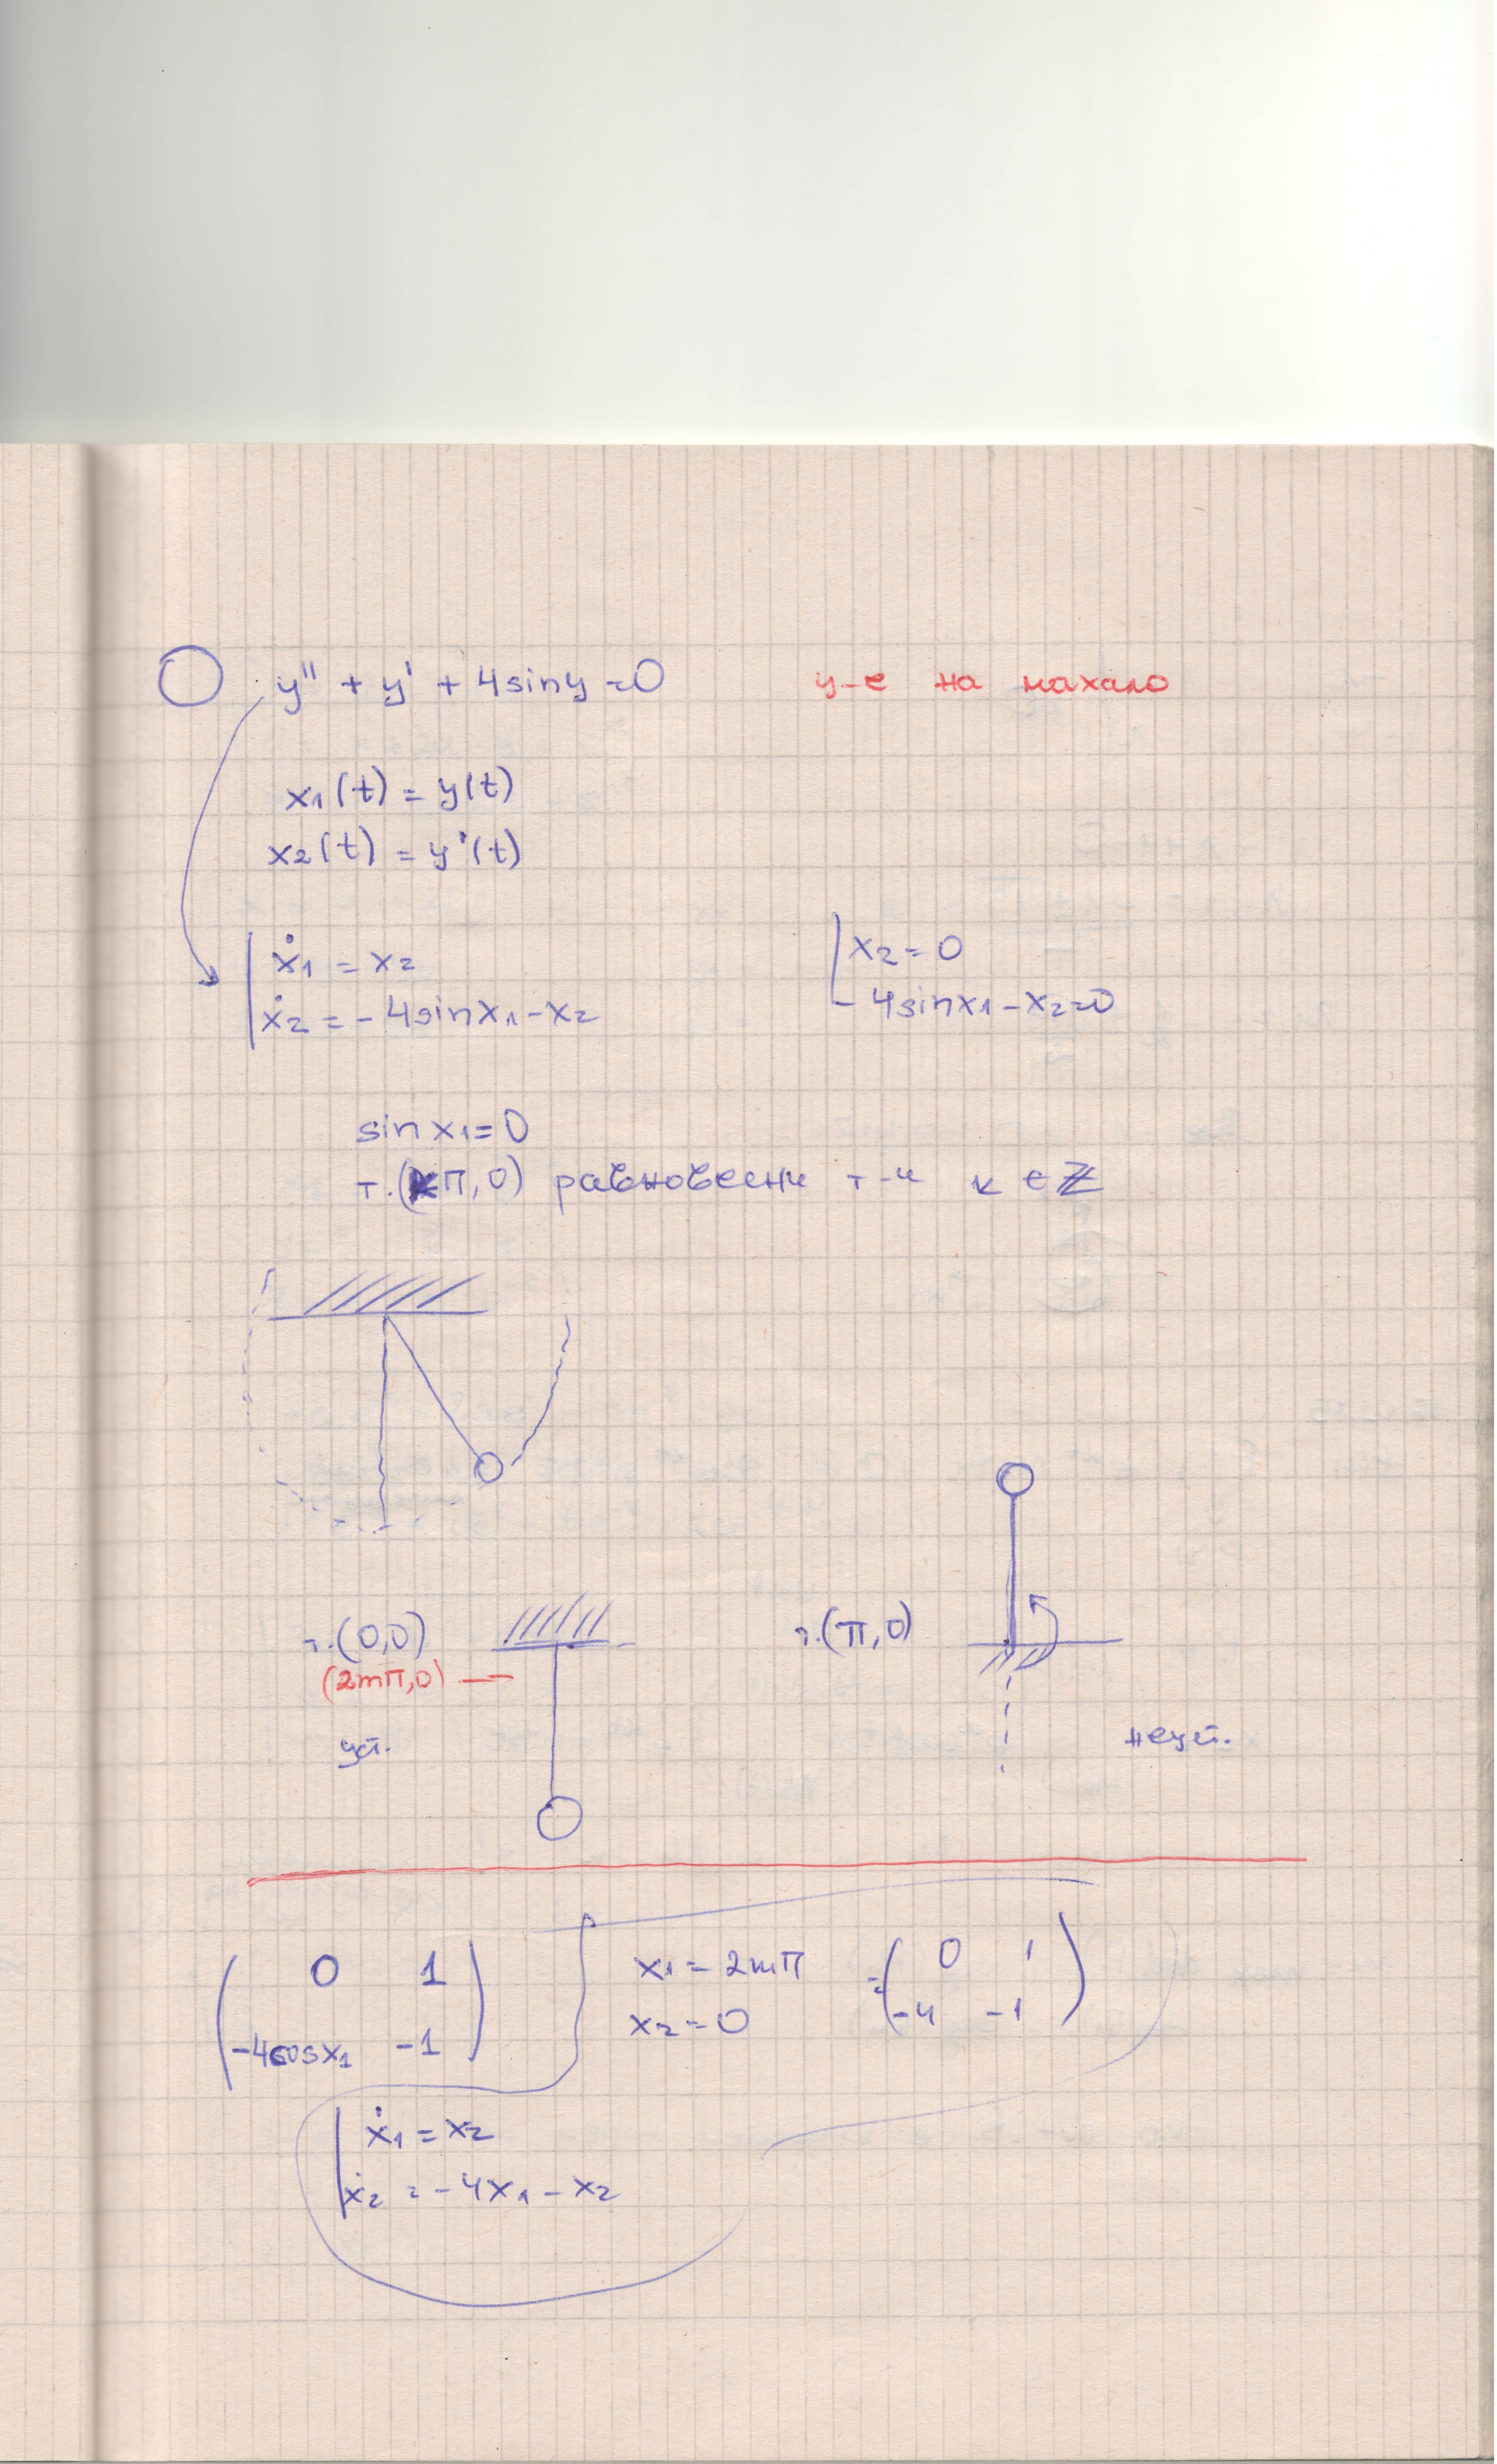 y'' + y' + 4siny = 0 у-е на махало
x₁(t) = y(t)
x₂(t) = y'(t)
ẋ₁ = x₂
ẋ₂ = -4sinx₁ - x₂
x₂ = 0
-4sinx₁ - x₂ = 0
sin x₁ = 0
т.(kπ, 0) равновесни т-и k ∈ ℤ
т.(0,0)
(2mπ,0) —
уст.
т.(π,0)
неуст.
( 0 1
-4cosx₁ -1 )
x₁ = 2mπ
x₂ = 0
= ( 0 1
-4 -1 )
ẋ₁ = x₂
ẋ₂ = -4x₁ - x₂